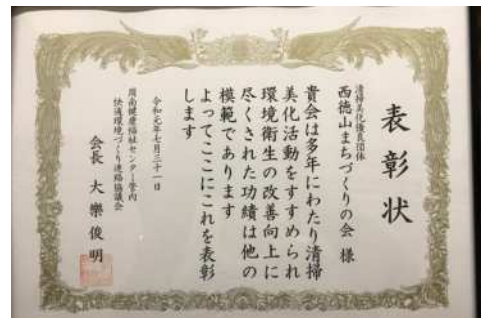 表彰状
清掃美化優良団体
西徳山まちづくりの会 様
貴会は多年にわたり清掃
美化活動をすすめられ
環境衛生の改善向上に
尽くされた功績は他の
模範であります
よってここにこれを表彰
します
令和元年七月三十一日
周南健康福祉センター管内
快適環境づくり連絡協議会
会長 大樂俊明